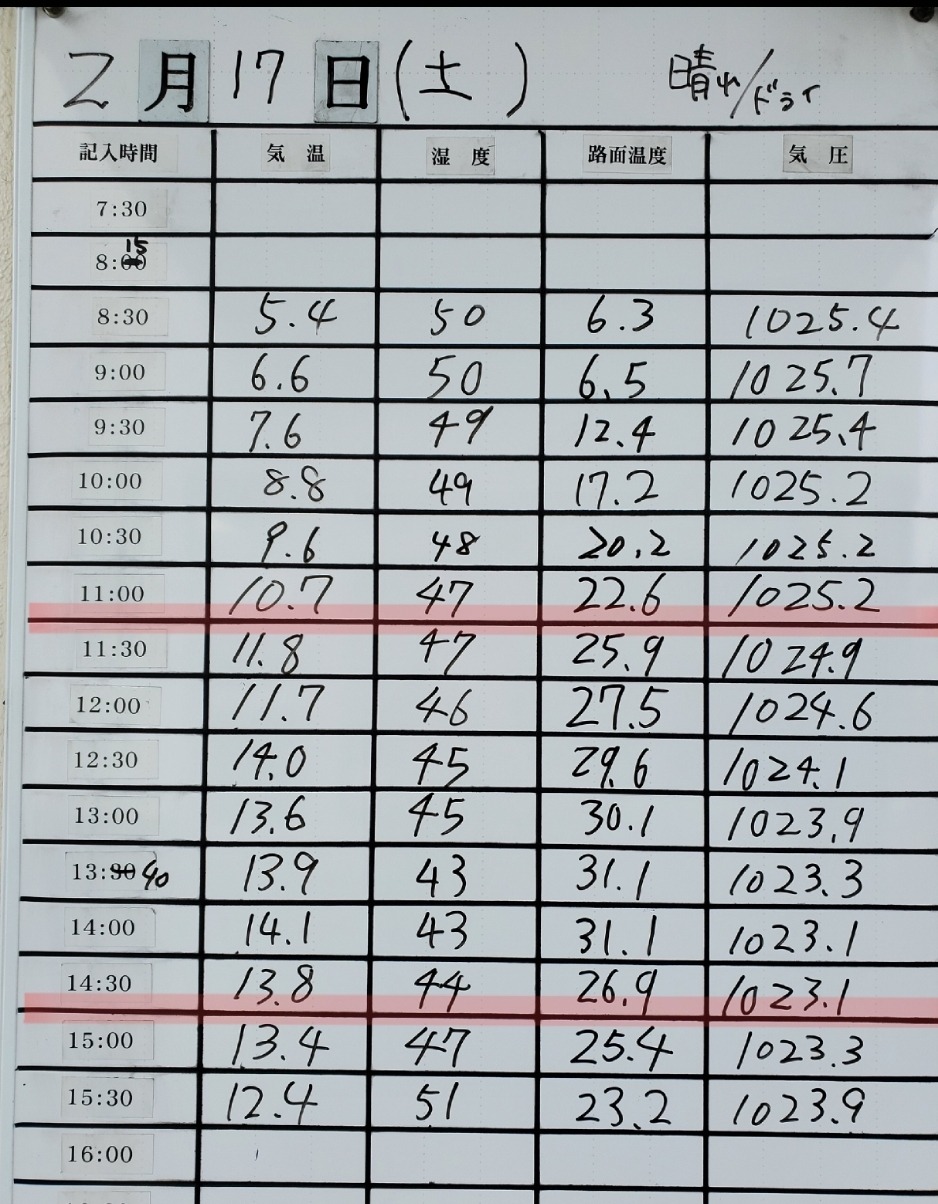 2月17日(土) 晴れ/ドライ
記入時間 気温 湿度 路面温度 気圧
7:30
8:15
8:30 5.4 50 6.3 1025.4
9:00 6.6 50 6.5 1025.7
9:30 7.6 49 12.4 1025.4
10:00 8.8 49 17.2 1025.2
10:30 9.6 48 20.2 1025.2
11:00 10.7 47 22.6 1025.2
11:30 11.8 47 25.9 1024.9
12:00 11.7 46 27.5 1024.6
12:30 14.0 45 29.6 1024.1
13:00 13.6 45 30.1 1023.9
13:40 13.9 43 31.1 1023.3
14:00 14.1 43 31.1 1023.1
14:30 13.8 44 26.9 1023.1
15:00 13.4 47 25.4 1023.3
15:30 12.4 51 23.2 1023.9
16:00